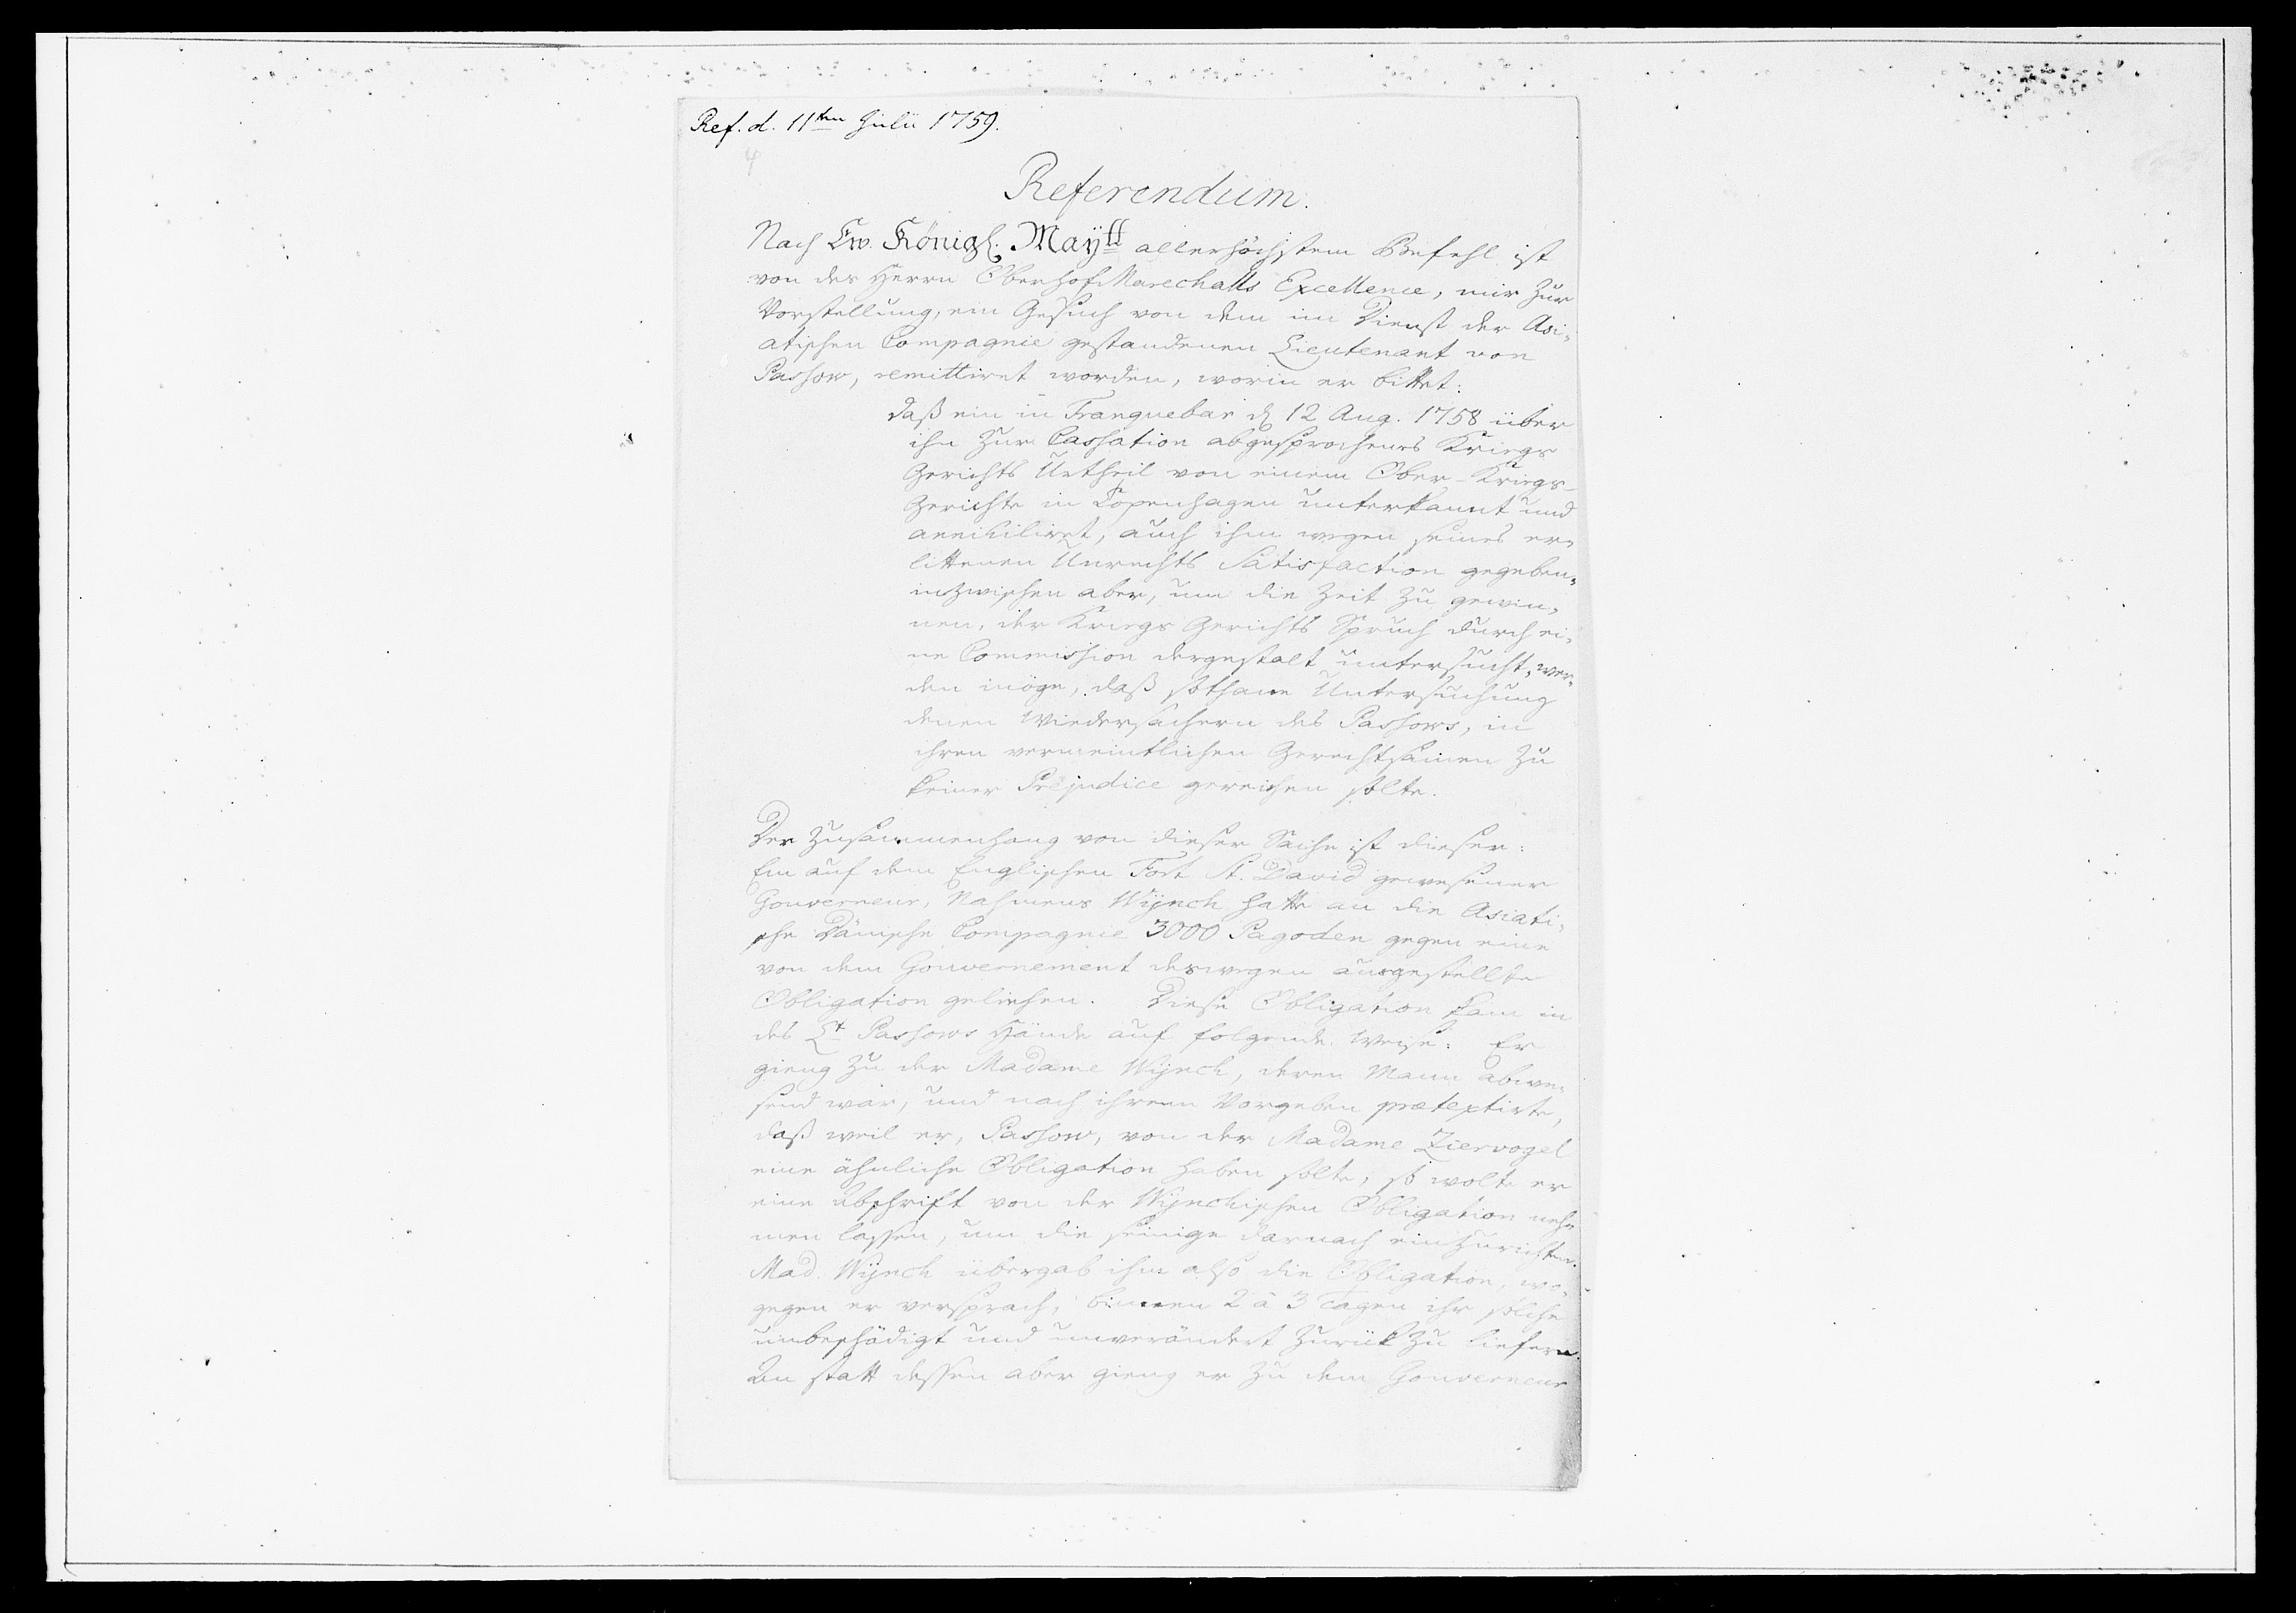 Ref. d. 11ten Julii 1759.
4
Referendum.
Nach Ew. Königl. Maytt allerhöchstem Befehl ist
von des Herrn OberhofMarechalls Excellence, mir zur
Vorstellung, ein Gesuch von dem im Dienst der Asi-
atischen Compagnie gestandenen Lieutenant von
Passow, remittiret worden, worin er bittet:
daß ein in Tranquebar d 12 Aug. 1758 über
ihn zur Cassation abgesprochenes Kriegs
Gerichts Urtheil von einem Ober-Kriegs-
Gerichte in Copenhagen unterkannt und
annihiliret, auch ihm wegen seines er-
littenen Unrechts Satisfaction gegeben,
inzwischen aber, um die Zeit zu gewin-
nen, der Kriegs Gerichts Spruch durch ei-
ne Commission dergestalt untersucht, wer-
den möge, daß sothane Untersuchung
denen Wiedersachern des Passows, in
ihren vermeintlichen Gerechtsamen zu
keiner Præjudice gereichen solte.
Der Zusammenhang von dieser Sache ist dieser:
Ein auf dem Englischen Fort St. David gewesener
Gouverneur, Nahmens Wijnch hatte an die Asiati-
sche Dänische Compagnie 3000 Pagoden gegen eine
von dem Gouvernement deswegen ausgestellte
Obligation geliehen. Diese Obligation kam in
des Lt Passows Hände auf folgende Weise: Er
gieng zu der Madame Wijnch, deren Mann abwe-
send war, und nach ihrem Vorgeben prætextirte,
daß weil er, Passow, von der Madame Ziervogel
eine ähnliche Obligation haben solte, so wolte er
eine Abschrift von der Wijnchischen Obligation neh-
men lassen, um die seinige darnach einzurichten.
Mad. Wijnch übergab ihm also die Obligation, wo-
gegen er versprach, binnen 2 à 3 Tagen ihr solche
unbeschädigt und unverändert zurück zu liefern.
An statt dessen aber gieng er zu dem Gouverneur